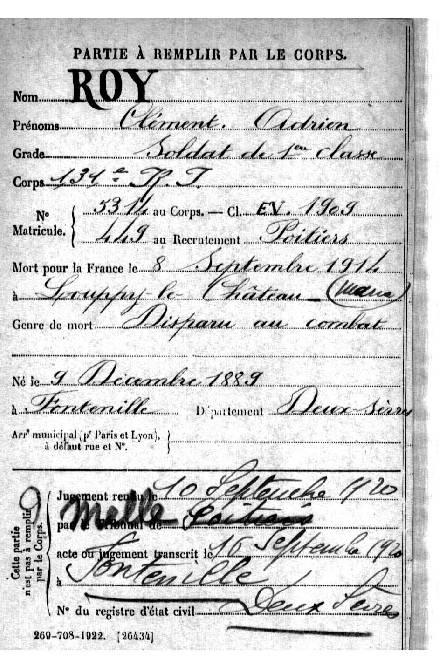 PARTIE À REMPLIR PAR LE CORPS.
Nom ROY
Prénoms Clément. Adrien
Grade Soldat de 1ère classe
Corps 131e R.I.
N° Matricule. { 5314 au Corps. — Cl. EV. 1909
449 au Recrutement Poitiers
Mort pour la France le 8 Septembre 1914
à Louppy le Château (Meuse)
Genre de mort Disparu au combat
Né le 9 Décembre 1889
à Fontenille Département Deux-Sèvres
Arrt municipal (pr Paris et Lyon), à défaut rue et N°. }
Cette partie n'est pas à remplir par le Corps.
Jugement rendu le 10 Septembre 1920
par le Tribunal de Melle Poitiers
acte ou jugement transcrit le 15 Septembre 1920
à Fontenille
Deux Sèvres
N° du registre d'état civil
269-708-1922. [26434]